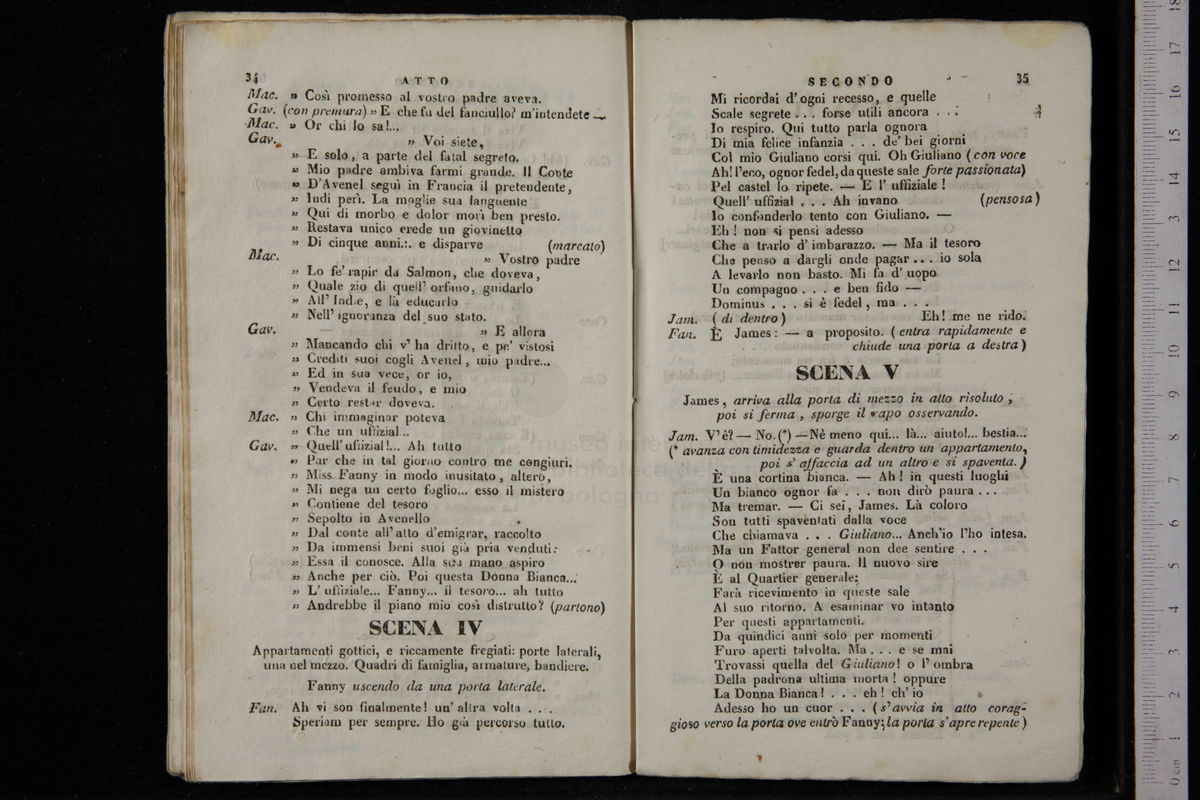 34
ATTO
Mac. » Così promesso al vostro padre aveva.
Gav. (con premura) » E che fu del fanciullo? m'intendete —
Mac. » Or chi lo sa!...
Gav. » Voi siete,
» E solo, a parte del fatal segreto.
» Mio padre ambiva farmi grande. Il Conte
» D'Avenel seguì in Francia il pretendente,
» Indi perì. La moglie sua languente
» Qui di morbo e dolor morì ben presto.
» Restava unico erede un giovinetto
» Di cinque anni.:. e disparve (marcato)
Mac. » Vostro padre
» Lo fe' rapir da Salmon, che doveva,
» Quale zio di quell' orfano, guidarlo
» All' Indie, e là educarlo
» Nell' ignoranza del suo stato.
Gav. » E allora
» Mancando chi v' ha dritto, e pe' vistosi
» Crediti suoi cogli Avenel, mio padre...
» Ed in sua vece, or io,
» Vendeva il feudo, e mio
» Certo restar doveva.
Mac. » Chi immaginar poteva
» Che un uffizial...
Gav. » Quell' uffizial!... Ah tutto
» Par che in tal giorno contro me congiuri.
» Miss Fanny in modo inusitato, altero,
» Mi nega un certo foglio... esso il mistero
» Contiene del tesoro
» Sepolto in Avenello
» Dal conte all' atto d'emigrar, raccolto
» Da immensi beni suoi già pria venduti:
» Essa il conosce. Alla sua mano aspiro
» Anche per ciò. Poi questa Donna Bianca...
» L' uffiziale... Fanny... il tesoro... ah tutto
» Andrebbe il piano mio così distrutto? (partono)
SCENA IV
Appartamenti gottici, e riccamente fregiati: porte laterali,
una nel mezzo. Quadri di famiglia, armature, bandiere.
Fanny uscendo da una porta laterale.
Fan. Ah vi son finalmente! un' altra volta . . .
Speriam per sempre. Ho già percorso tutto.
SECONDO
35
Mi ricordai d' ogni recesso, e quelle
Scale segrete . . . forse utili ancora . . .
Io respiro. Qui tutto parla ognora
Di mia felice infanzia . . . de' bei giorni
Col mio Giuliano corsi qui. Oh Giuliano (con voce
Ah! l'eco, ognor fedel, da queste sale forte passionata)
Pel castel lo ripete. — E l' uffiziale!
Quell' uffizial . . . Ah invano (pensosa)
Io confonderlo tento con Giuliano. —
Eh! non si pensi adesso
Che a trarlo d' imbarazzo. — Ma il tesoro
Che penso a dargli onde pagar... io sola
A levarlo non basto. Mi fa d' uopo
Un compagno . . . e ben fido —
Dominus . . . si è fedel, ma . . .
Jam. (di dentro) Eh! me ne rido.
Fan. È James: — a proposito. (entra rapidamente e
chiude una porta a destra)
SCENA V
James, arriva alla porta di mezzo in atto risoluto,
poi si ferma, sporge il capo osservando.
Jam. V'è? — No. (*) — Nè meno qui... là... aiuto!... bestia...
(* avanza con timidezza e guarda dentro un appartamento,
poi s' affaccia ad un altro e si spaventa.)
È una cortina bianca. — Ah! in questi luoghi
Un bianco ognor fa . . . non dirò paura . . .
Ma tremar. — Ci sei, James. Là coloro
Son tutti spaventati dalla voce
Che chiamava . . . Giuliano... Anch'io l'ho intesa.
Ma un Fattor general non dee sentire . . .
O non mostrer paura. Il nuovo sire
È al Quartier generale;
Farà ricevimento in queste sale
Al suo ritorno. A esaminar vo intanto
Per questi appartamenti.
Da quindici anni solo per momenti
Furo aperti talvolta. Ma . . . e se mai
Trovassi quella del Giuliano! o l' ombra
Della padrona ultima morta! oppure
La Donna Bianca! . . . eh! ch' io
Adesso ho un cuor . . . (s'avvia in atto corag-
gioso verso la porta ove entrò Fanny; la porta s'apre repente)